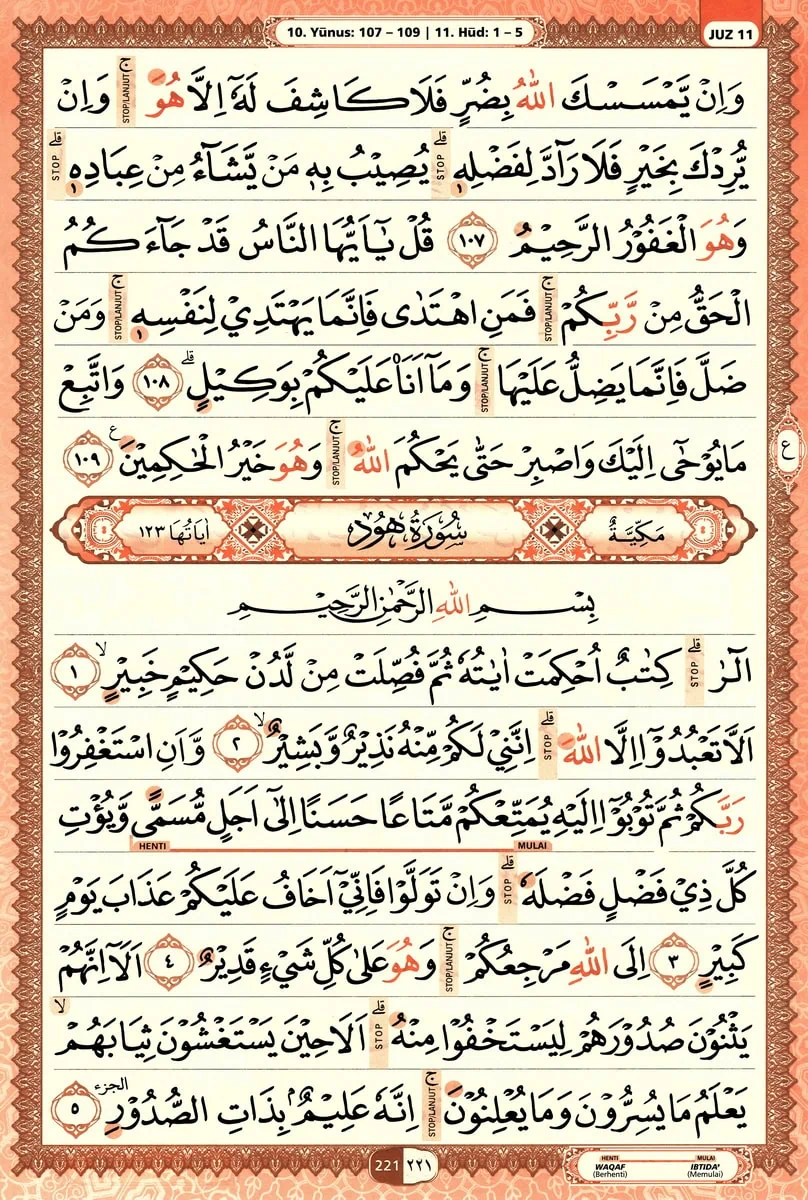 10. Yūnus: 107 – 109 | 11. Hūd: 1 – 5
JUZ 11
وَاِنْ يَّمْسَسْكَ اللّٰهُ بِضُرٍّ فَلَا كَاشِفَ لَهٗٓ اِلَّا هُوَ ۚ STOP/LANJUT وَاِنْ
يُّرِدْكَ بِخَيْرٍ فَلَا رَاۤدَّ لِفَضْلِهٖ ۗ STOP يُصِيْبُ بِهٖ مَنْ يَّشَاۤءُ مِنْ عِبَادِهٖ ۗ STOP
وَهُوَ الْغَفُوْرُ الرَّحِيْمُ ١٠٧ قُلْ يٰٓاَيُّهَا النَّاسُ قَدْ جَاۤءَكُمُ
الْحَقُّ مِنْ رَّبِّكُمْ ۚ STOP/LANJUT فَمَنِ اهْتَدٰى فَاِنَّمَا يَهْتَدِيْ لِنَفْسِهٖ ۚ STOP/LANJUT وَمَنْ
ضَلَّ فَاِنَّمَا يَضِلُّ عَلَيْهَا ۚ STOP/LANJUT وَمَآ اَنَا۠ عَلَيْكُمْ بِوَكِيْلٍ ۗ ١٠٨ وَاتَّبِعْ
مَا يُوْحٰٓى اِلَيْكَ وَاصْبِرْ حَتّٰى يَحْكُمَ اللّٰهُ ۚ STOP/LANJUT وَهُوَ خَيْرُ الْحٰكِمِيْنَ ع ١٠٩
ع
مَكِّيَّةٌ سُوْرَةُ هُوْدٍ اٰيَاتُهَا ١٢٣
بِسْمِ اللّٰهِ الرَّحْمٰنِ الرَّحِيْمِ
الۤرٰ ۗ STOP كِتٰبٌ اُحْكِمَتْ اٰيٰتُهٗ ثُمَّ فُصِّلَتْ مِنْ لَّدُنْ حَكِيْمٍ خَبِيْرٍ ۙ ١
اَلَّا تَعْبُدُوْٓا اِلَّا اللّٰهَ ۗ STOP اِنَّنِيْ لَكُمْ مِّنْهُ نَذِيْرٌ وَّبَشِيْرٌ ۙ ٢ وَّاَنِ اسْتَغْفِرُوْا
رَبَّكُمْ ثُمَّ تُوْبُوْٓا اِلَيْهِ يُمَتِّعْكُمْ مَّتَاعًا حَسَنًا اِلٰٓى اَجَلٍ مُّسَمًّى وَّيُؤْتِ
MULAI HENTI
كُلَّ ذِيْ فَضْلٍ فَضْلَهٗ ۗ STOP وَاِنْ تَوَلَّوْا فَاِنِّيْٓ اَخَافُ عَلَيْكُمْ عَذَابَ يَوْمٍ
كَبِيْرٍ ٣ اِلَى اللّٰهِ مَرْجِعُكُمْ ۚ STOP/LANJUT وَهُوَ عَلٰى كُلِّ شَيْءٍ قَدِيْرٌ ٤ اَلَآ اِنَّهُمْ
يَثْنُوْنَ صُدُوْرَهُمْ لِيَسْتَخْفُوْا مِنْهُ ۗ STOP اَلَا حِيْنَ يَسْتَغْشُوْنَ ثِيَابَهُمْ ۙ
يَعْلَمُ مَا يُسِرُّوْنَ وَمَا يُعْلِنُوْنَ ۚ STOP/LANJUT اِنَّهٗ عَلِيْمٌ ۢ بِذَاتِ الصُّدُوْرِ الجزء ٥
221 ٢٢١
HENTI MULAI
WAQAF IBTIDA'
(Berhenti) (Memulai)